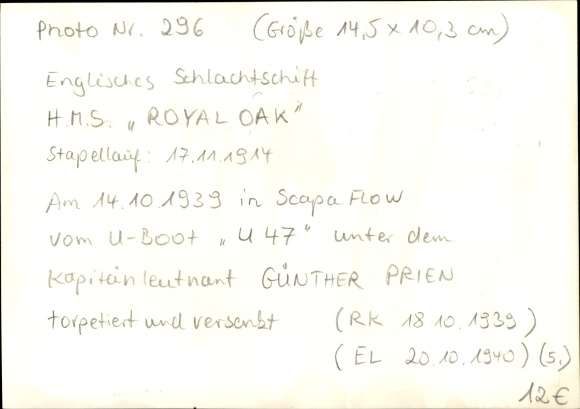 Photo Nr. 296 (Größe 14,5 x 10,3 cm)
Englisches Schlachtschiff
H.M.S. „ROYAL OAK"
Stapellauf: 17.11.1914
Am 14.10.1939 in Scapa FLOW
vom U-Boot „U 47" unter dem
Kapitänleutnant GÜNTHER PRIEN
torpetiert und versenkt (RK 18 10.1939)
(EL 20.10.1940) (5.)
12€